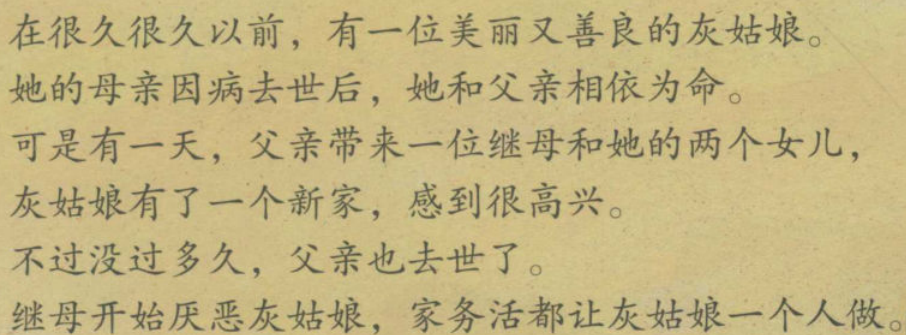 在很久很久以前，有一位美丽又善良的灰姑娘。
她的母亲因病去世后，她和父亲相依为命。
可是有一天，父亲带来一位继母和她的两个女儿，
灰姑娘有了一个新家，感到很高兴。
不过没过多久，父亲也去世了。
继母开始厌恶灰姑娘，家务活都让灰姑娘一个人做。